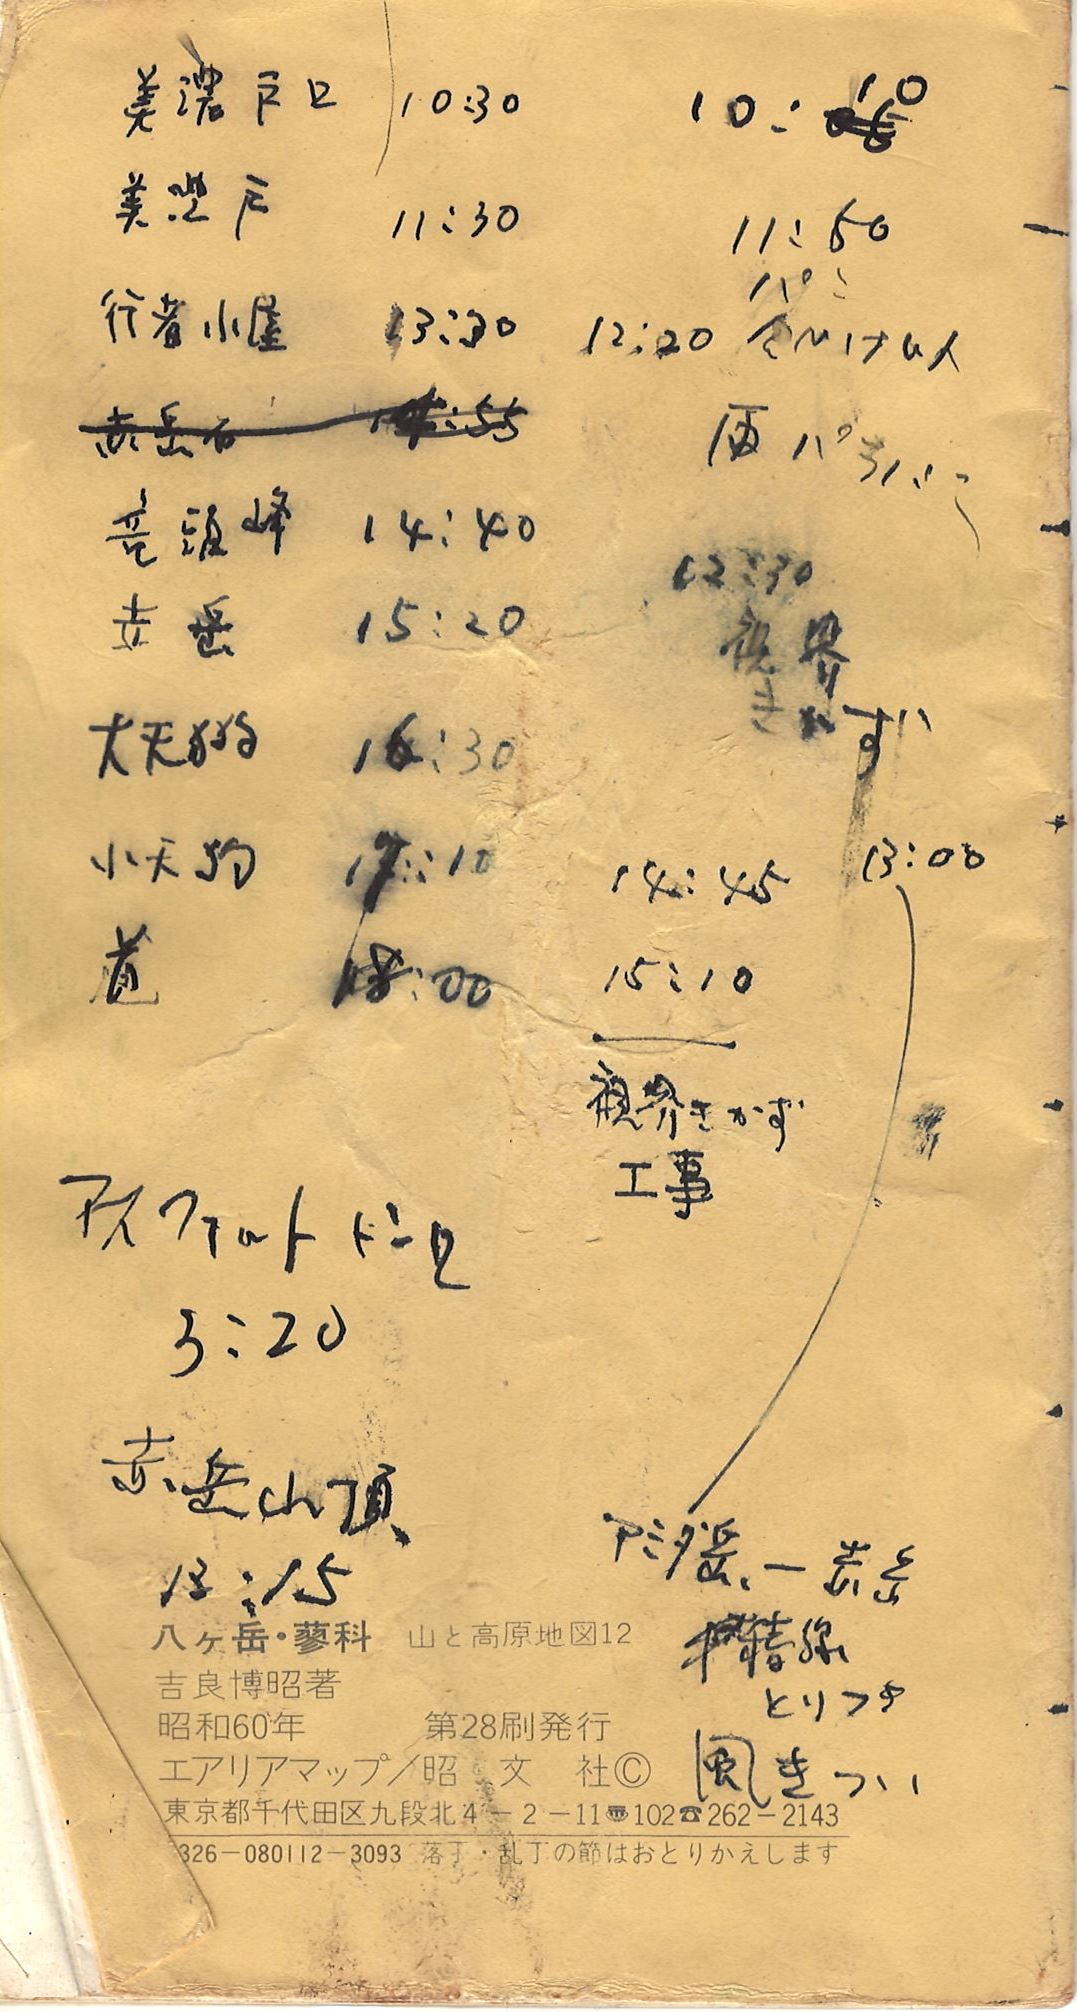 美濃戸口 10:30 10:10
美濃戸 11:30 11:50
行者小屋 13:30 12:20
雨パラパラ
竜頭峰 14:40
12:30
赤岳 15:20
視界
きかず
大天狗 16:30
小天狗 17:10 14:45 13:00
道 18:00 15:10
視界きかず
工事
アスファルト
5:20
赤岳山頂
13:15
アミダ岳ー赤岳
とりつき
風きつい
八ヶ岳・蓼科 山と高原地図12
吉良博昭著
昭和60年 第28刷発行
エアリアマップ/昭文社©
東京都千代田区九段北4-2-11〠102☎262-2143
326-080112-3093 落丁・乱丁の節はおとりかえします